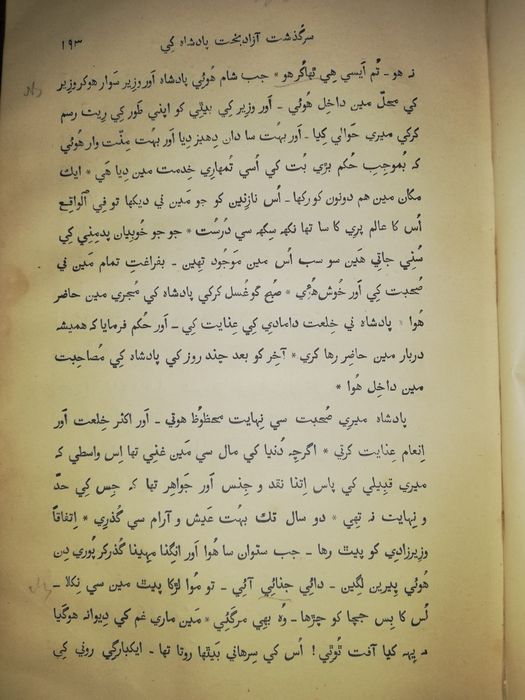 سرگذشت آزاد بخت پادشاہ کي
۱۹۳
نہ ہو ۔ تُم اَیسي ہِي تھاکُر ہو * جب شام ہُوئي پادشاہ اَور وزِیر سَوار ہوکر وزِیر
کي محلّ مین داخِل ہُوئي ۔ اَور وزِیر کِي بیٹِي کو اپنِي طَور کِي رِیت رسم
کرکي میري حَوالي کِیا ۔ اَور بہُت سا دان دِہیز دِیا اَور بہُت مِنّت وار ہُوئي
کہ بمُوجِبِ حُکم بڑي بُت کي اُسي تُمہارِي خِدمت مین دِیا ہَي * ایك
مکان مین ہم دونون کو رکھا ۔ اُس نازنِین کو جو مَین ني دیکھا تو فِي اَلواقِع
اُس کا عالم پرِي کا سا تھا نکھہ سِکھہ سي دُرُست * جو جو خُوبِیان پدمِنِي کِي
سُنِي جاتِي ہَین سو سب اُس مین مَوجُود تھِین ۔ بفراغتِ تمام مَین ني
صُحبت کِي اَور خُوش ہُوئي * صُبح کو غُسل کرکي پادشاہ کي مُجري مین حاضِر
ہُوا * پادشاہ ني خِلعت دامادِي کي عِنایت کِي ۔ اَور حُکم فرمایا کہ ہمیشہ
دربار مین حاضِر رہا کري * آخِر کو بعد چند روز کي پادشاہ کِي مُصاحِبت
مین داخِل ہُوا *
پادشاہ میرِي صُحبت سي نِہایت محظوُظ ہوتي ۔ اَور اکثر خِلعت اَور
اِنعام عِنایت کرتي * اگرچِہ دُنیا کي مال سي مَین غنِي تھا اِس واسطي کہ
میري قبِیلي کي پاس اِتنا نقد و جِنس اَور جَواہِر تھا کہ جِس کِي حدّ
و نِہایت نہ تھِي * دو سال تك بہُت عَیش و آرام سي گُذرِي * اِتفاقاً
وزِیرزادِي کو پیٹ رہا ۔ جب ستوان سا ہُوا اَور انگِنا مہِینا گُذر کر پُوري دِن
ہُوئي پِیرین لگِین ۔ دائِي جنائِي آئِي ۔ تو مُوا لڑکا پیٹ مین سي نِکلا ۔
اُس کا بِس جچا کو چڑھا ۔ وُہ بھِي مرگئِي * مَین ماري غم کي دِیوانہ ہوگیا
کہ یِہہ کیا آفت ٹُوٹِي ! اُس کي سِرہاني بَیٹھا روتا تھا ۔ ایکبارگِي روني کِي